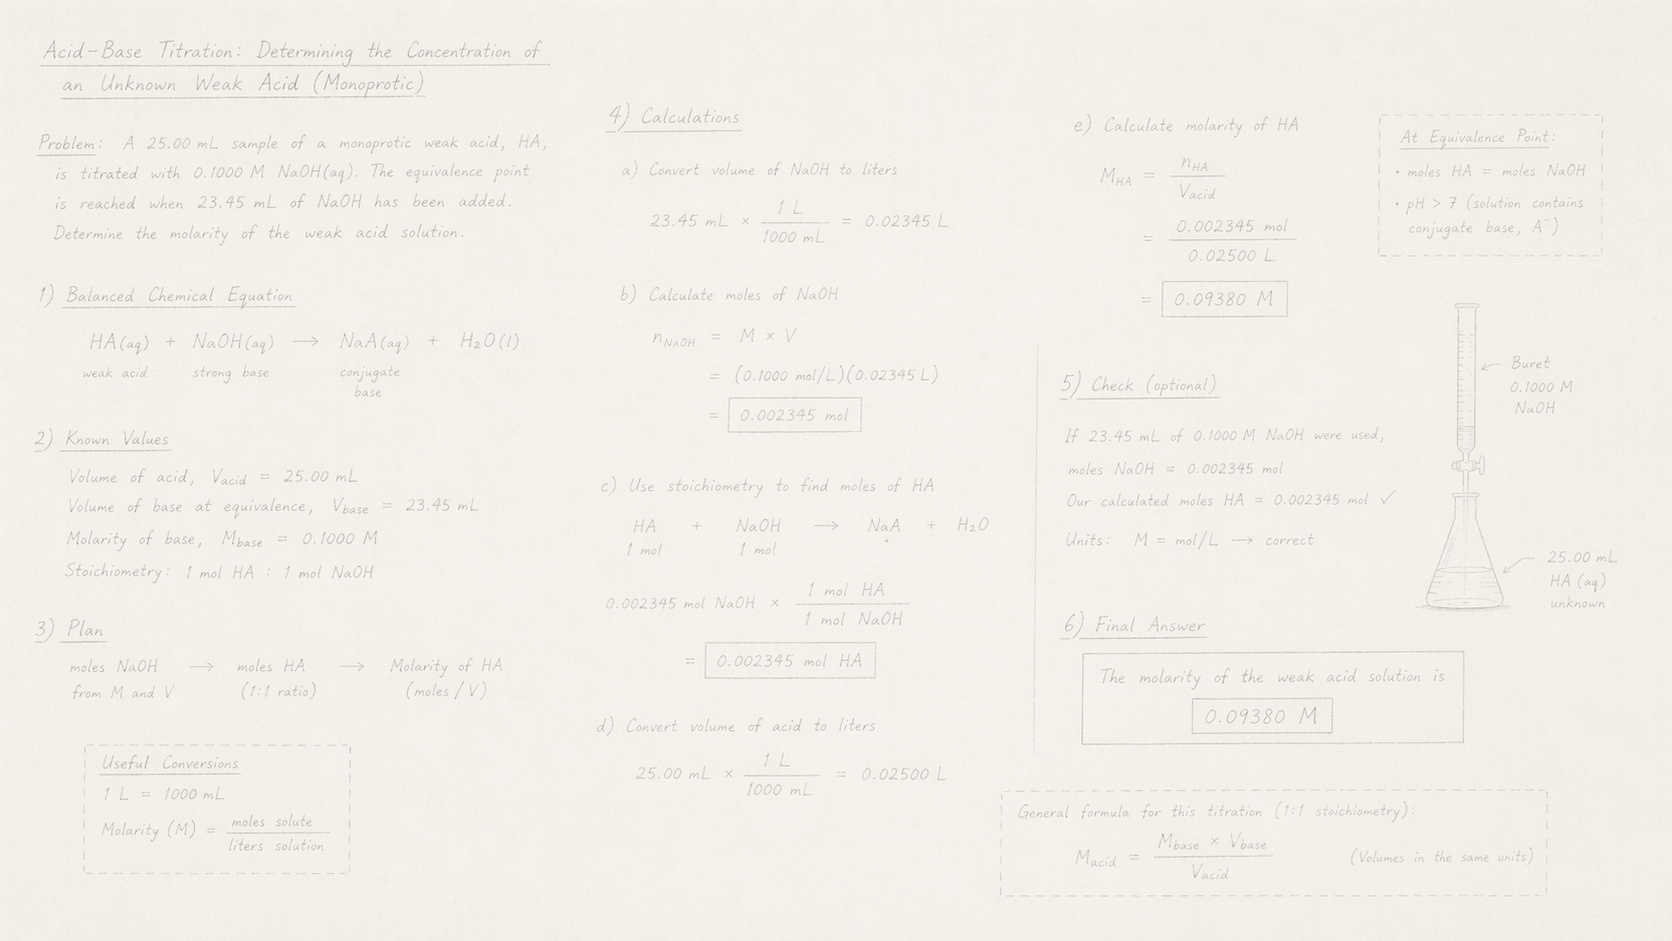 Acid-Base Titration: Determining the Concentration of
an Unknown Weak Acid (Monoprotic)
Problem: A 25.00 mL sample of a monoprotic weak acid, HA,
is titrated with 0.1000 M NaOH(aq). The equivalence point
is reached when 23.45 mL of NaOH has been added.
Determine the molarity of the weak acid solution.
1) Balanced Chemical Equation
HA(aq) + NaOH(aq) → NaA(aq) + H₂O(l)
weak acid strong base conjugate
base
2) Known Values
Volume of acid, Vacid = 25.00 mL
Volume of base at equivalence, Vbase = 23.45 mL
Molarity of base, Mbase = 0.1000 M
Stoichiometry: 1 mol HA : 1 mol NaOH
3) Plan
moles NaOH → moles HA → Molarity of HA
from M and V (1:1 ratio) (moles / V)
Useful Conversions
1 L = 1000 mL
Molarity (M) = moles solute
liters solution
4) Calculations
a) Convert volume of NaOH to liters
23.45 mL × 1 L = 0.02345 L
1000 mL
b) Calculate moles of NaOH
nNaOH = M × V
= (0.1000 mol/L)(0.02345 L)
= 0.002345 mol
c) Use stoichiometry to find moles of HA
HA + NaOH → NaA + H₂O
1 mol 1 mol
0.002345 mol NaOH × 1 mol HA
1 mol NaOH
= 0.002345 mol HA
d) Convert volume of acid to liters
25.00 mL × 1 L = 0.02500 L
1000 mL
e) Calculate molarity of HA
MHA = nHA
Vacid
= 0.002345 mol
0.02500 L
= 0.09380 M
At Equivalence Point:
• moles HA = moles NaOH
• pH > 7 (solution contains
conjugate base, A⁻)
Buret
0.1000 M
NaOH
25.00 mL
HA (aq)
unknown
5) Check (optional)
If 23.45 mL of 0.1000 M NaOH were used,
moles NaOH = 0.002345 mol
Our calculated moles HA = 0.002345 mol ✓
Units: M = mol/L → correct
6) Final Answer
The molarity of the weak acid solution is
0.09380 M
General formula for this titration (1:1 stoichiometry):
Macid = Mbase × Vbase
Vacid
(Volumes in the same units)